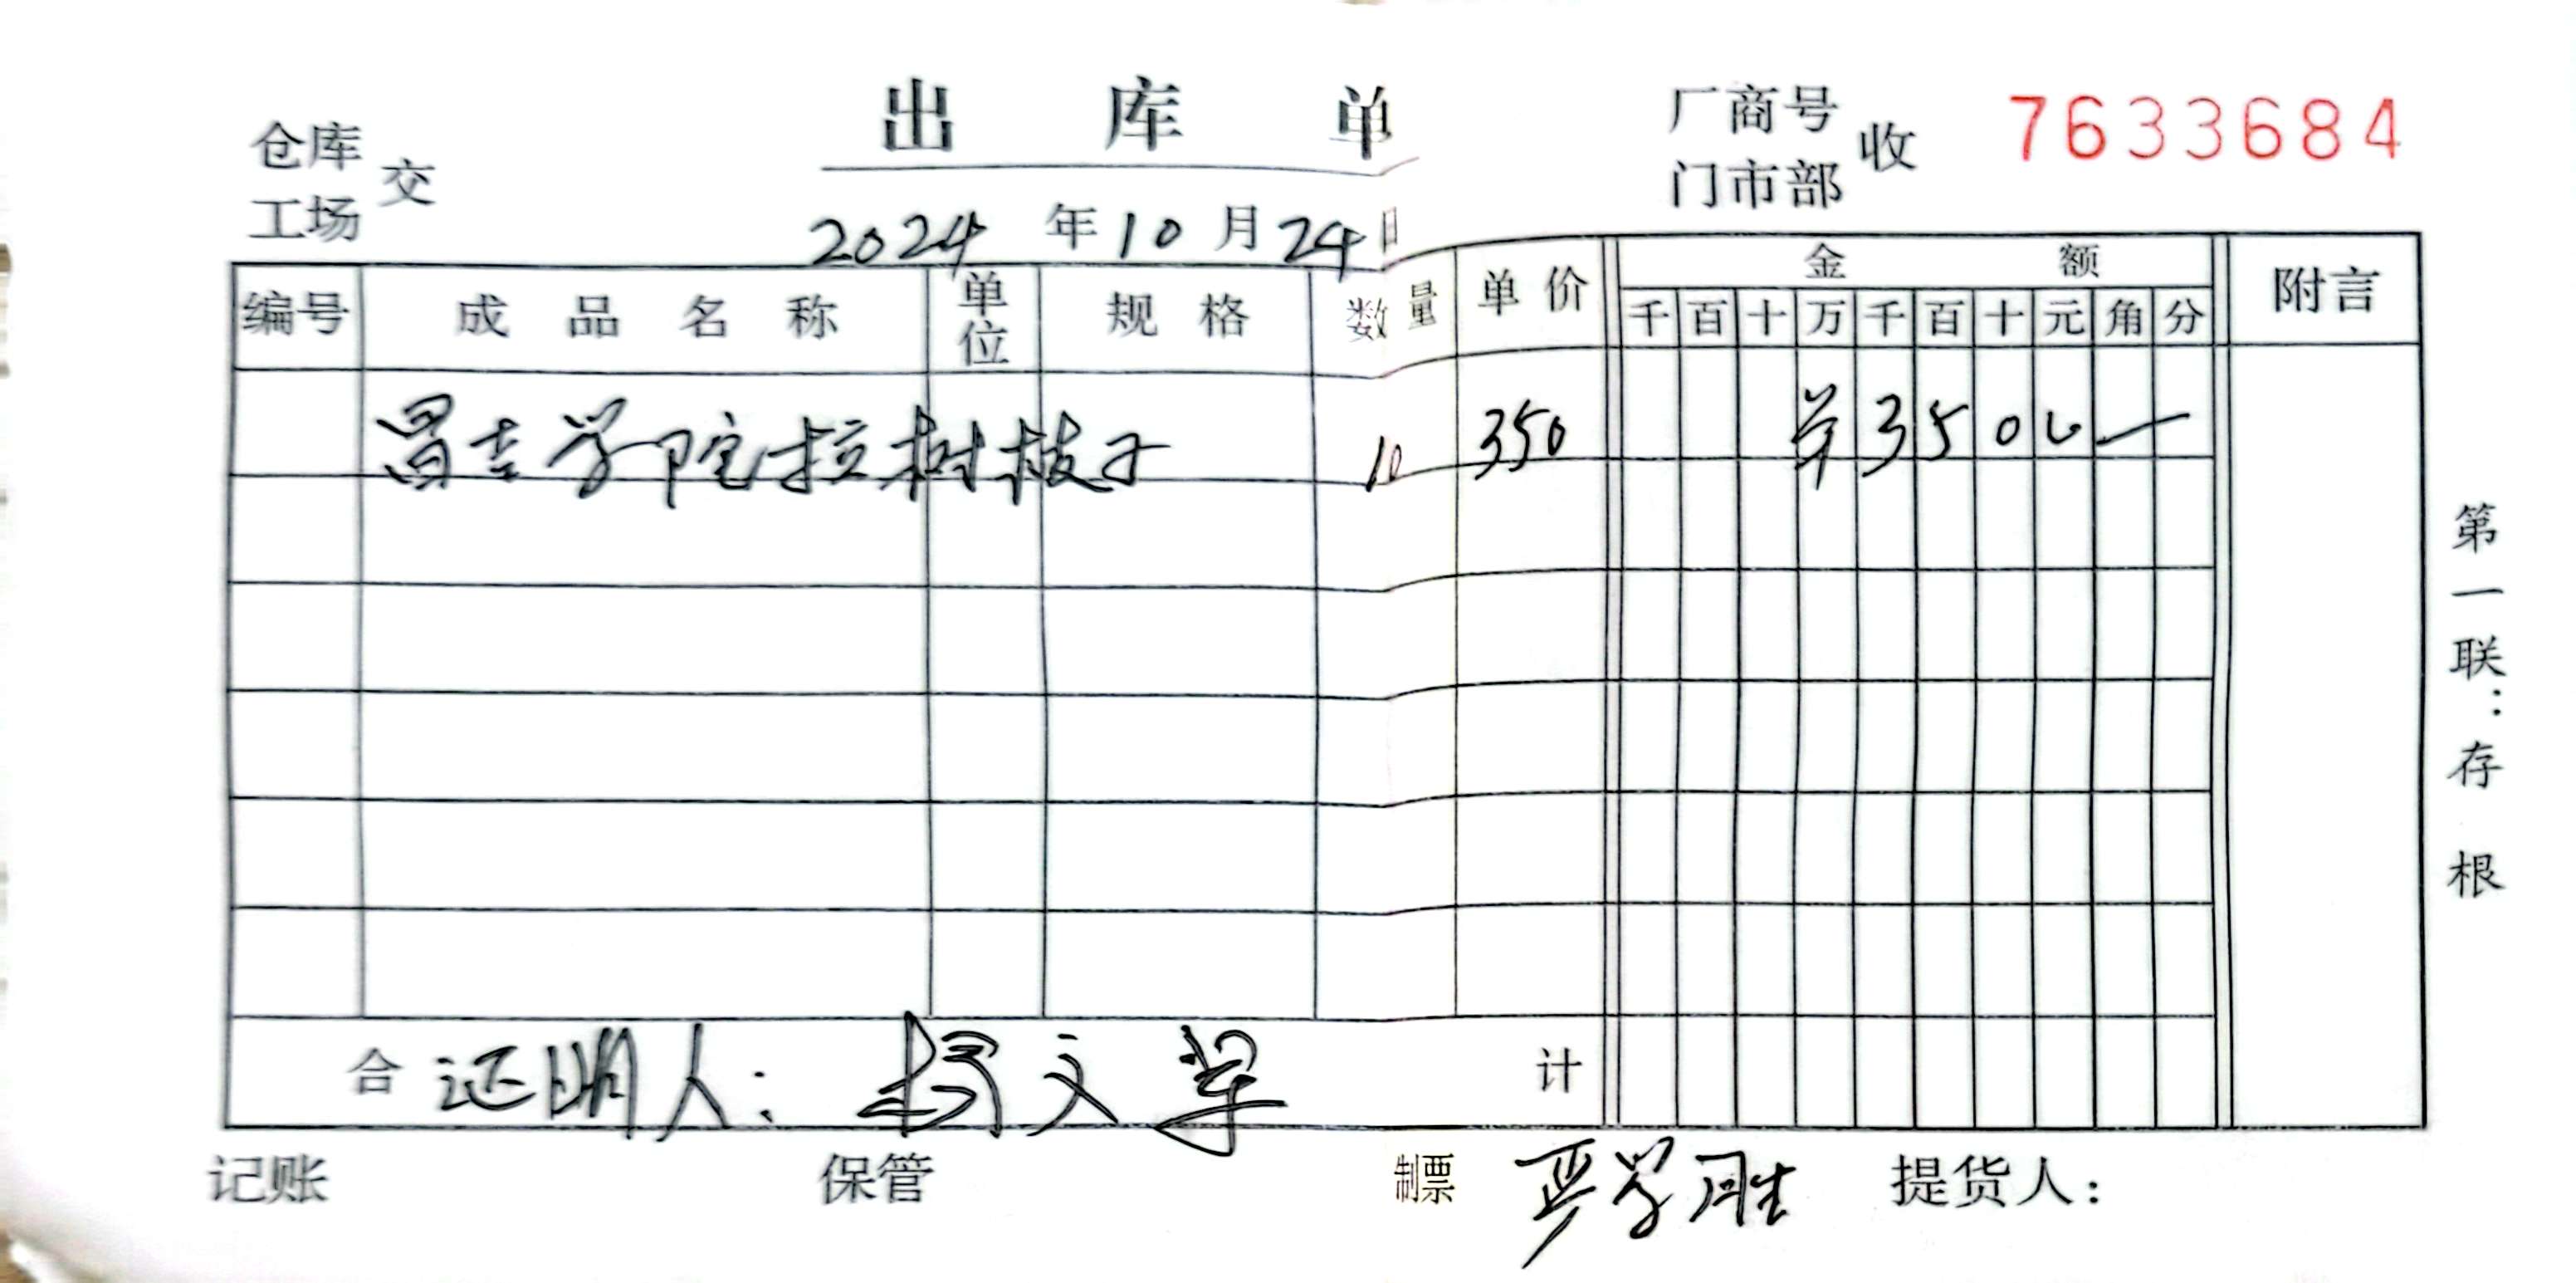 出 库 单
厂商号
门市部 收
7633684
仓库
工场 交
2024 年 10 月 24 日
编号 成 品 名 称 单位 规 格 数量 单价 金 额 附言
千 百 十 万 千 百 十 元 角 分
昌吉学院拉树枝子 10 350 ¥ 3 5 0 0 —
合 证明人: 杨文 计
记账 保管 制票 严学胜 提货人:
第一联:存根